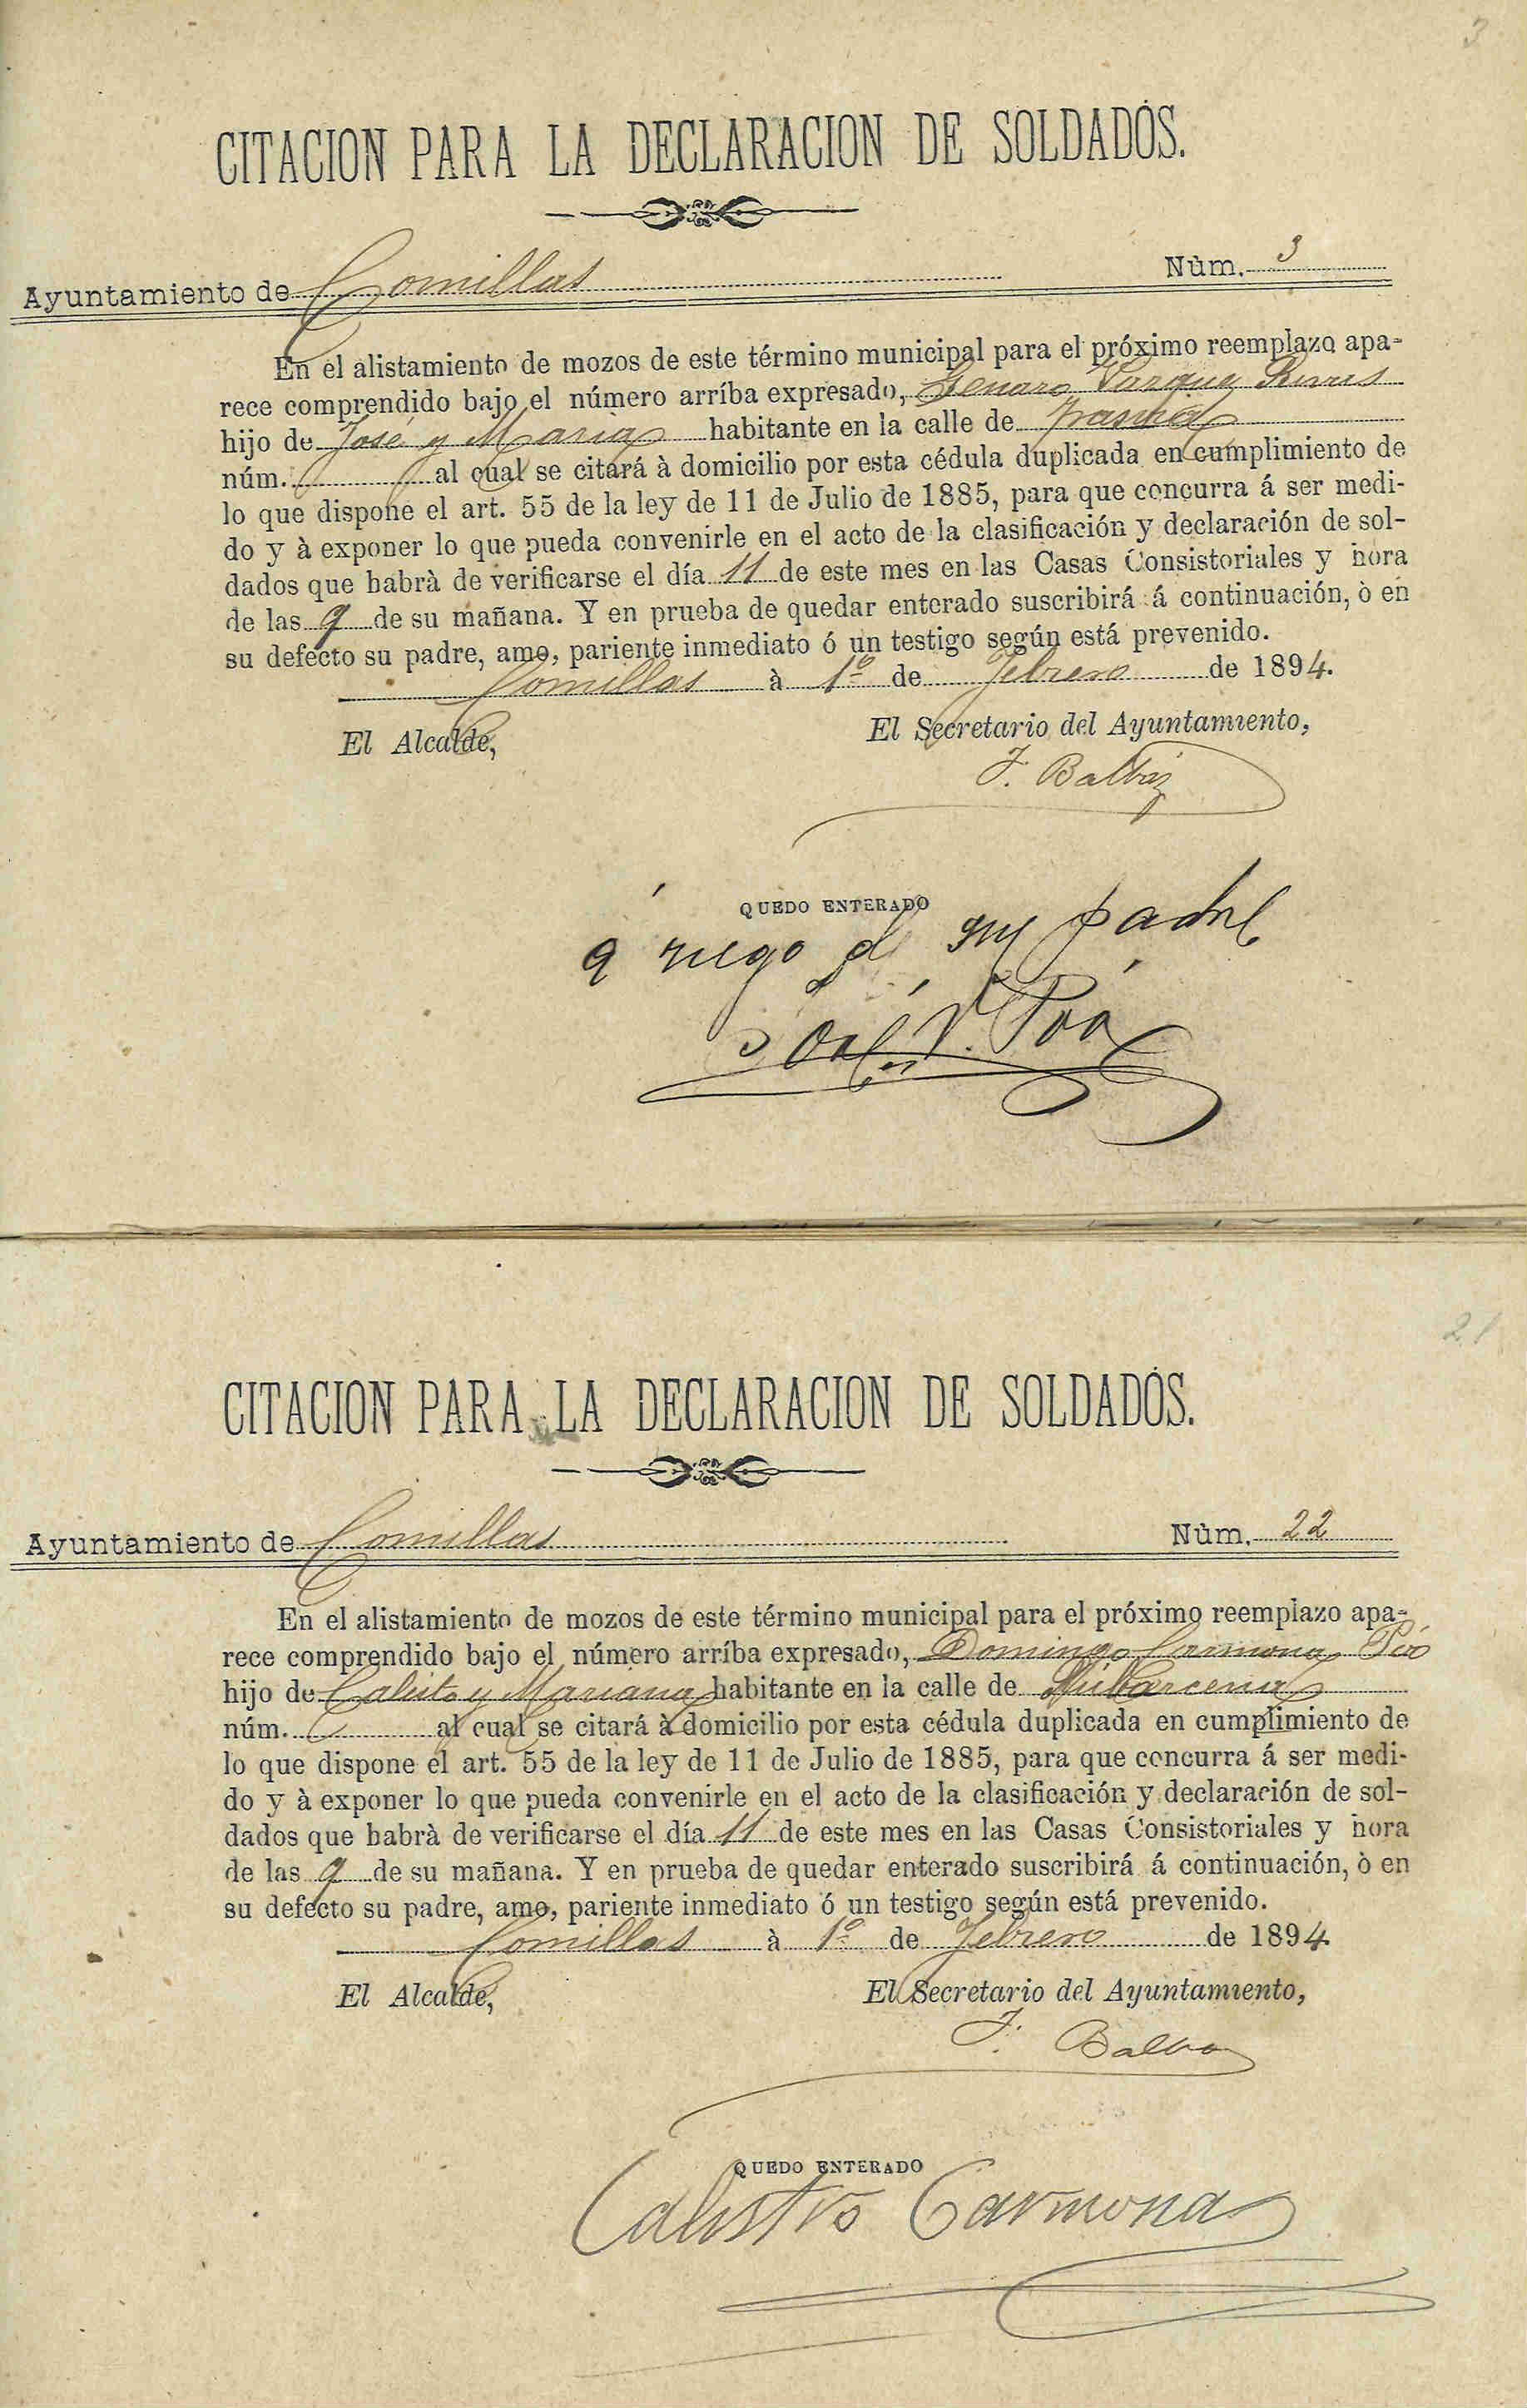 3
CITACION PARA LA DECLARACION DE SOLDADOS.
Ayuntamiento de Comillas Núm. 3
En el alistamiento de mozos de este término municipal para el próximo reemplazo apa-
rece comprendido bajo el número arriba expresado, Genaro
hijo de José y Maria habitante en la calle de
núm. al cual se citará à domicilio por esta cédula duplicada en cumplimiento de
lo que dispone el art. 55 de la ley de 11 de Julio de 1885, para que concurra á ser medi-
do y à exponer lo que pueda convenirle en el acto de la clasificación y declaración de sol-
dados que habrà de verificarse el día 11 de este mes en las Casas Consistoriales y hora
de las 9 de su mañana. Y en prueba de quedar enterado suscribirá á continuación, ò en
su defecto su padre, amo, pariente inmediato ó un testigo según está prevenido.
Comillas à 1º de Febrero de 1894.
El Alcalde, El Secretario del Ayuntamiento,
F. Balbás
QUEDO ENTERADO
á ruego de su padre
21
CITACION PARA LA DECLARACION DE SOLDADOS.
Ayuntamiento de Comillas Núm. 22
En el alistamiento de mozos de este término municipal para el próximo reemplazo apa-
rece comprendido bajo el número arriba expresado, Domingo Carmona
hijo de Calisto y Mariana habitante en la calle de
núm. al cual se citará à domicilio por esta cédula duplicada en cumplimiento de
lo que dispone el art. 55 de la ley de 11 de Julio de 1885, para que concurra á ser medi-
do y à exponer lo que pueda convenirle en el acto de la clasificación y declaración de sol-
dados que habrà de verificarse el día 11 de este mes en las Casas Consistoriales y hora
de las 9 de su mañana. Y en prueba de quedar enterado suscribirá á continuación, ò en
su defecto su padre, amo, pariente inmediato ó un testigo según está prevenido.
Comillas à 1º de Febrero de 1894
El Alcalde, El Secretario del Ayuntamiento,
F. Balbás
QUEDO ENTERADO
Calistro Carmona